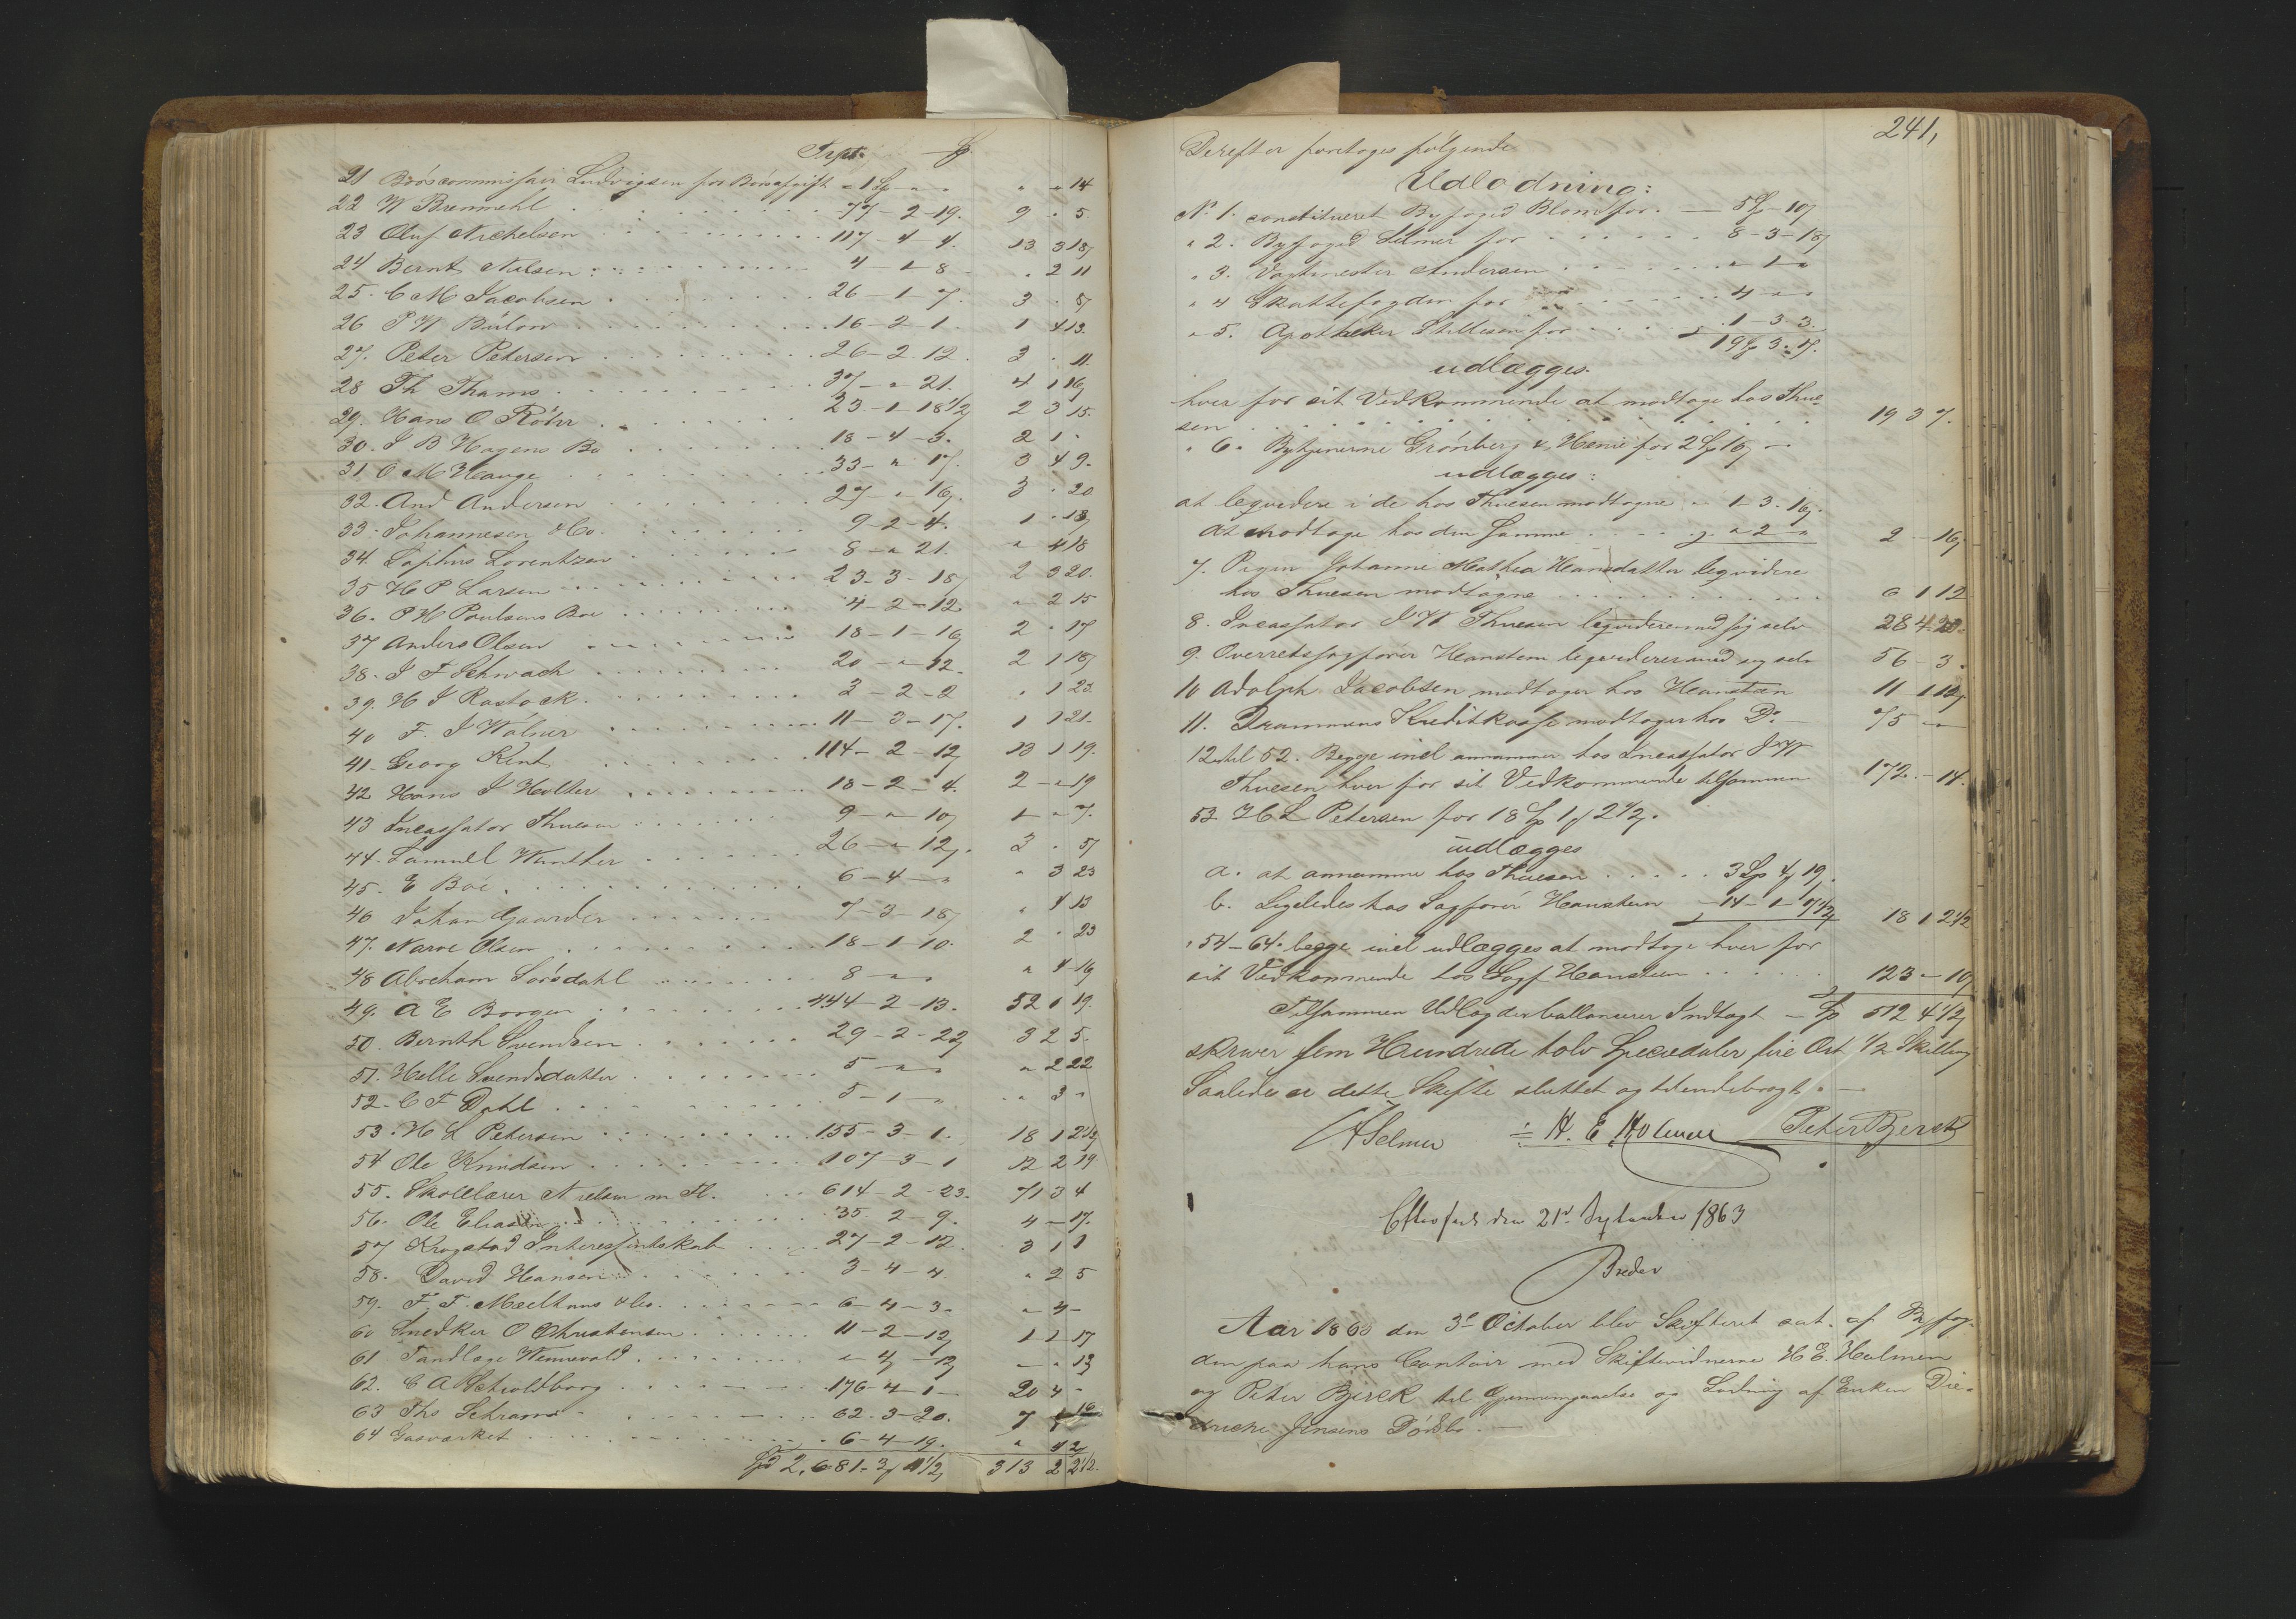 Trpt. Sp.
21 Börscommissair Ludvigsen for Börsafgift " 1 Sp " " " " 14
22 W Bremmehl 77-2-19. 9 " 5.
23 Oluf Michelsen 117-4-4. 13 3 18
24 Bernt Nilsen 4-1-8 " 2 11
25. C M Jacobsen 26-1-7. 3 " 5
26 P W Bülow 16-2-1. 1 4 13.
27. Peter Petersen 26-2 12. 3 " 11.
28 Th Thams 37-" 21. 4 1 16
29. Hans O. Röhr 23-1-18 1/2 2 3 15.
30. J B Hagens Bo 18-4-3. 2 1 "
31 O. M Hauge 33-" 17. 3 4 9.
32. And Andersen 27-" 16. 3 " 20
33. Johannesen & Co. 9-2-4. 1 " 18
34. Sophus Lorentzen 8-" 21. " 4 18
35 H P Larsen 23-3-18 2 3 20.
36. P H Poulsens Bo 4-2-12. " 2 15
37 Anders Olsen 18-1-16 2 " 17
38. J F Schwach 20-"-12 2 1 18
39. H J Rastock 3-2-2 " 1 23.
40 F. J Wälner 11-3-17. 1 1 21.
41. Georg Kent 114-2-12 13 1 19.
42 Hans J Holter 18-2-4. 2-"19
43 Incassator Thuesen 9-"-10 1-"7.
44. Samuel Wanther 26-"12. 3 " 5
45. E Boe 6-4-" " 3 23
46 Johan Gaarder 7-3-18 " 4 13
47. Narve Olsen 18-1-10. 2 " 23
48 Abraham Sörsdahl 8-" " " 4 16
49. A E Borgen 444-2-13. 52 1 19.
50. Bernth Svendsen 29-2-22 3 2 5.
51. Helle Svendsdatter 5-" " " 2 22
52. C F Dahl 5-1-" " 3 "
53. H L Petersen 155-3-1. 18 1 2 1/2
54 Ole Knudsen 107-3-1 12 2 19
55. Skolelærer Nielsen m Fl. 614-2-23. 71 3 4
56. Ole Eliasen 35. 2-9. 4-17.
57 Krogstad Interessentskab 27-2-12. 3 1 1
58. David Hansen 3-4-4. " 2 5
59. F. F. Melthuus & Co. 6-4-3. " 4-
60 Snedker O Christensen 11-2-12 1 1-17
61 Tandlæge Wennevold "-4-12 - " 13
62. C A Schioldborg 176-4-1- 20 4 -
63 Ths Schram 62-3-20. 7 1 16
64 Gasværket 6-4-19. " 4 2
Spd 2,681-3 11 1/2 313 2 2 1/2.
241,
Derefter foretoges følgende
Udlodning:
No 1. constitueret Byfoged Blom for. - 5 Sp - 10
" 2. Byfoged Selmer for 8-3-18
" 3. Vagtmester Andersen "-1-"
" 4 Skattefogden for 4-" "
" 5. Apotheker Stillesen for 1-3 3.
19 Sp 3 " 7.
udlægges.
hver for sit Vedkommende at modtage hos Thue-
sen 19 3 7.
" 6. Bytjenerne Grönberg & Henie for 2 Sp 16 -
udlægges:
at leqvidere i de hos Thuesen modtagne " 1-3. 16.
at modtage hos den samme " 2 " 2 - 16
7. Pigen Johanne Mathea Hansdatter leqvidere
hos Thuesen modtagne 6 1 12
8. Incassator J W Thuesen leqviderer med sig selv 28 4 20.
9. Overretssagfører Hansteen leqviderer med sig selv 56-3.
10 Adolph Jacobsen modtager hos Hansteen 11-1 12
11. Drammens Kreditkasse modtager hos Do. 75 - "
12 til 52. Begge incl annammer hos Incassator J W
Thuesen hver for sit Vedkommende tilsammen 172.-14.
53. H L Petersen for 18 Sp 1 2 1/2.
udlægges
a. at annamme hos Thuesen 3 Sp 4 19.
b. Ligeledes hos Sagfører Hansteen 14-1-7 1/2 18 1 2 1/2
" 54-64. begge incl udlægges at modtage hver for
sit Vedkommende hos Sagf Hansteen 123 - 10
Tilsammen Udlæg der ballancerer Indtægt - Sp 512 4 1/2
skriver fem Hundrede tolv Speciedaler fire Ort 1/2 Skilling
Saaledes er dette Skifte sluttet og tilendebragt. -
Selmer H. E. Holmen Peter Bjerck
Efterseet den 21de September 1863
Breder
Aar 1863 den 3de October blev Skifteret sat af Byfog-
den paa hans Contoir med Skiftevidnerne H E. Holmen
og Peter Bjerck til Gjennemgaaelse og Lodning af Enken Die-
dricke Jensens Dødsbo. -